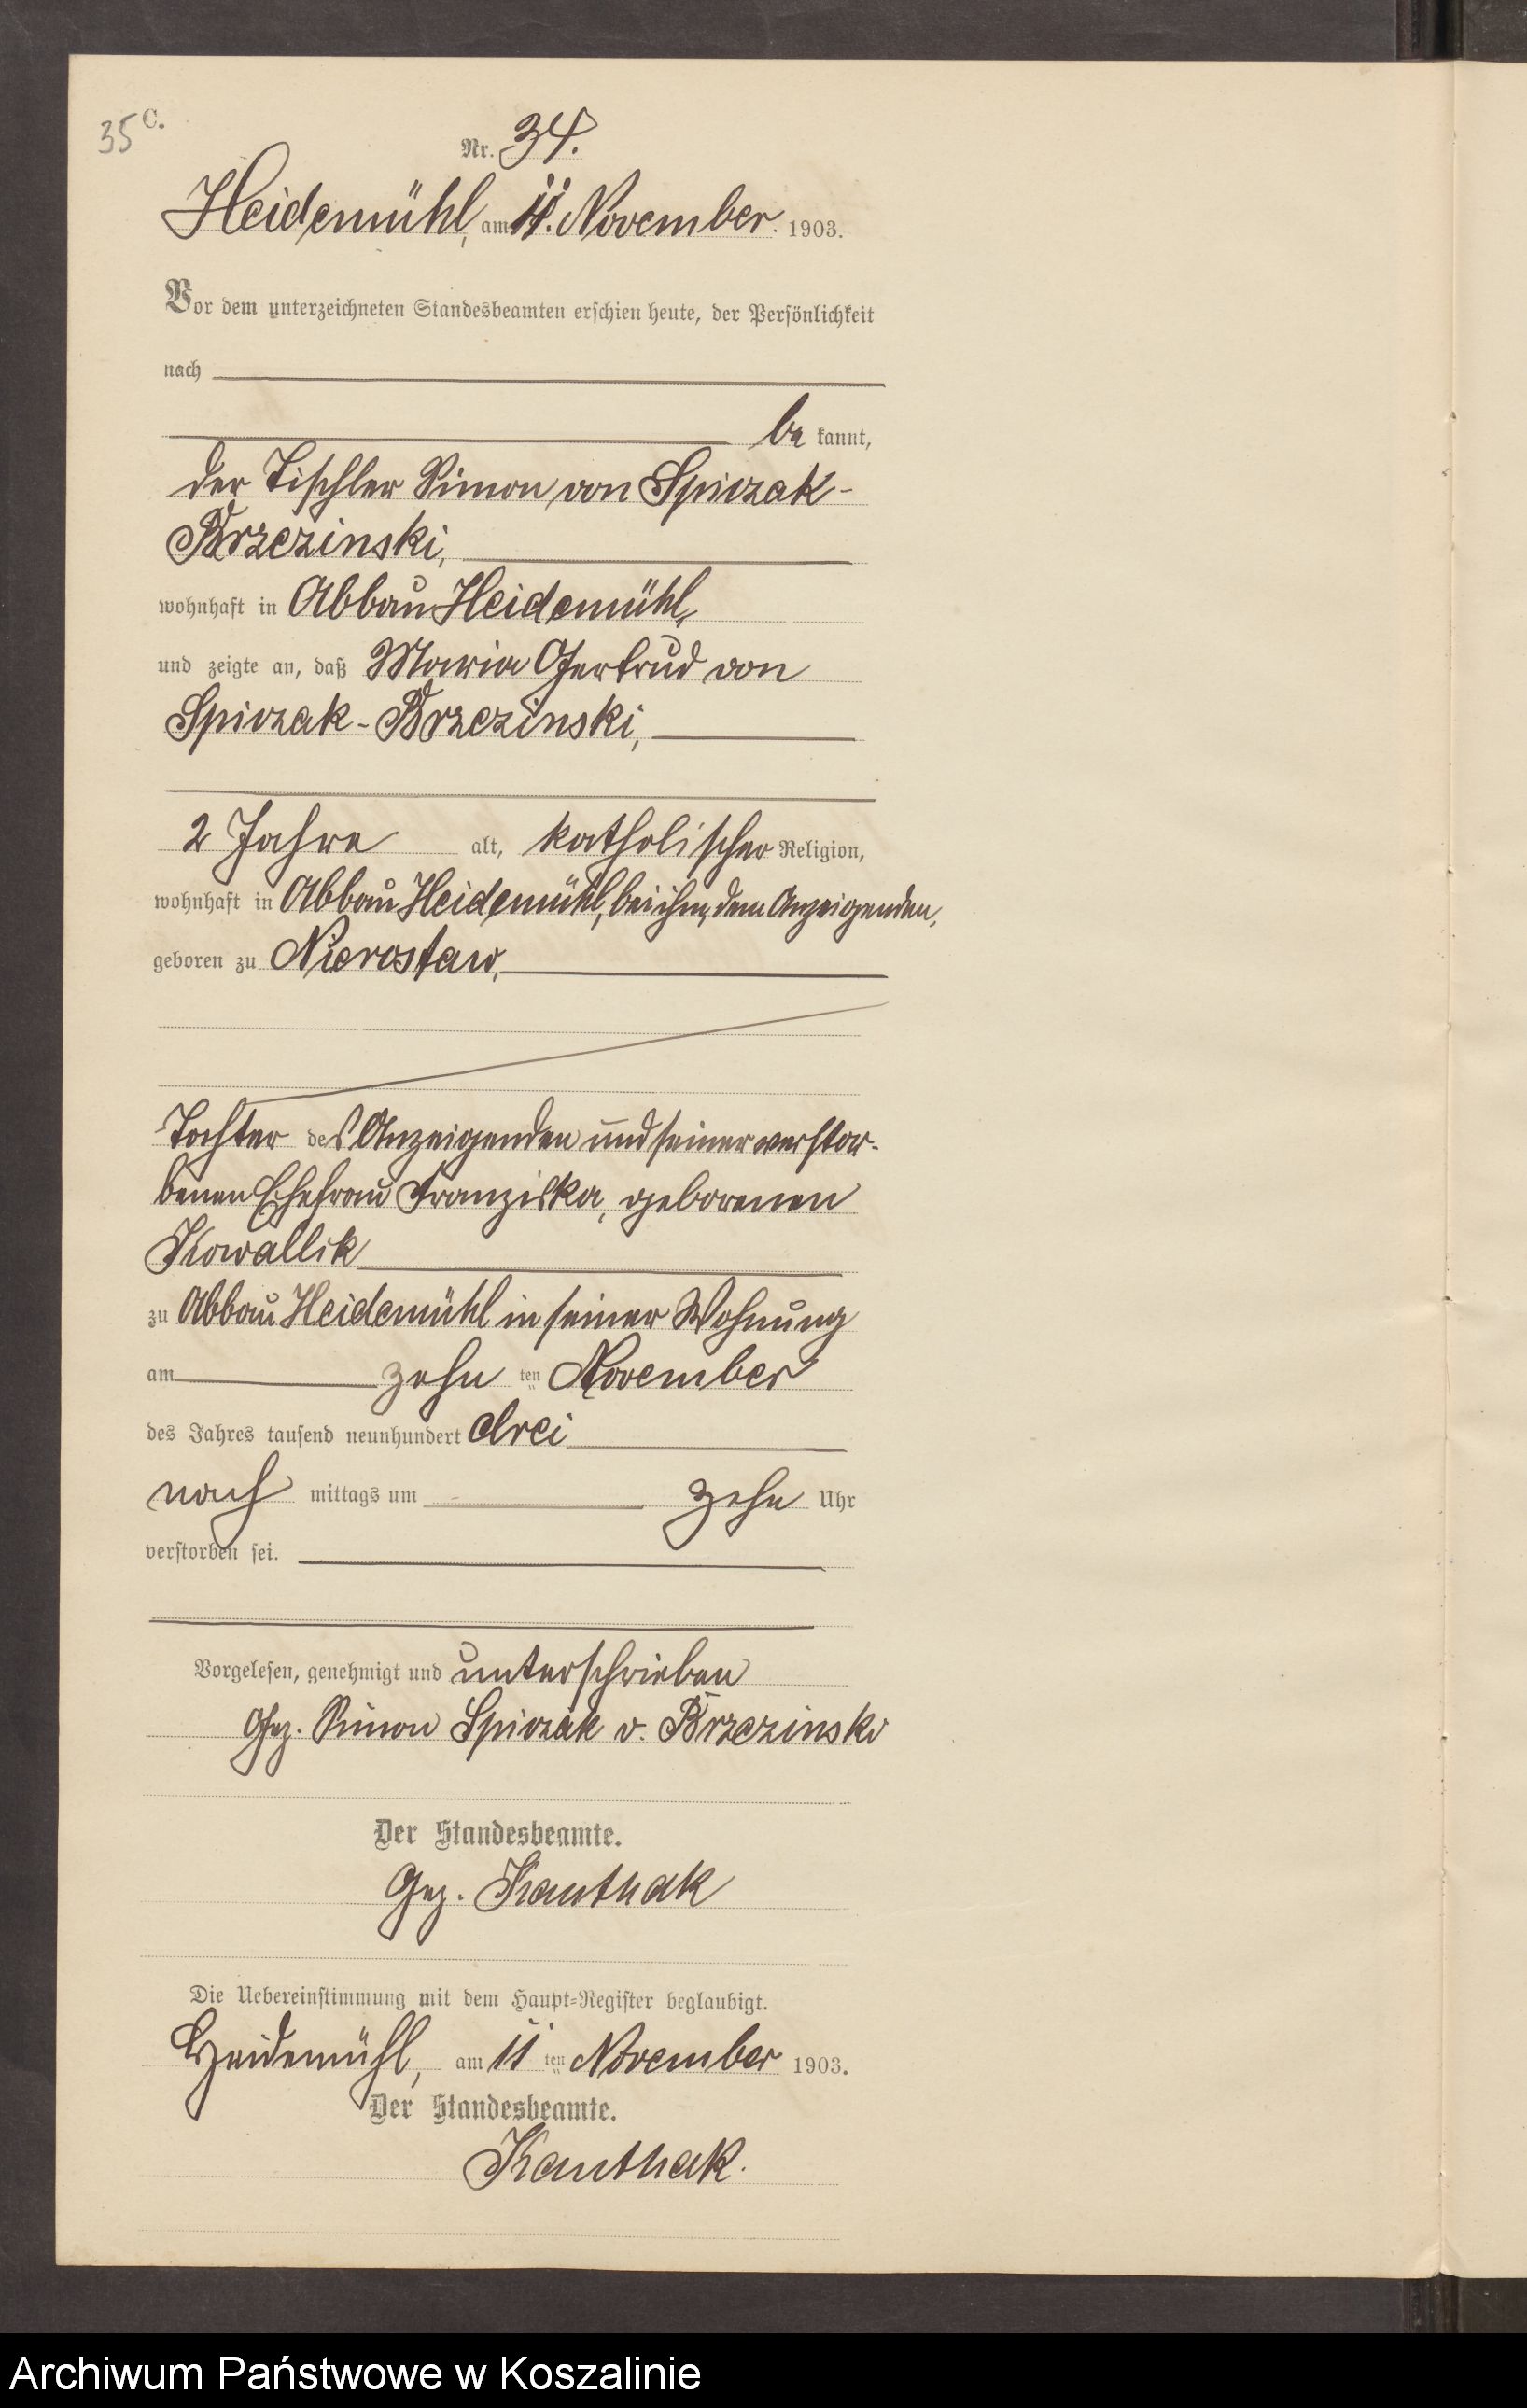 35 C.
Nr. 34.
Heidemühl, am 11. November. 1903.
Vor dem unterzeichneten Standesbeamten erschien heute, der Persönlichkeit
nach
be kannt,
der Tischler Simon von Spiczak-
Brzezinski,
wohnhaft in Abbau Heidemühl,
und zeigte an, daß Maria Gertrud von
Spiczak-Brzezinski,
2 Jahre alt, katholischer Religion,
wohnhaft in Abbau Heidemühl, bei ihm, dem Anzeigenden,
geboren zu Nierostaw,
Tochter des Anzeigenden und seiner verstor-
benen Ehefrau Franziska, geborenen
Kowallik
zu Abbau Heidemühl in seiner Wohnung
am zehn ten November
des Jahres tausend neunhundert drei
nach mittags um zehn Uhr
verstorben sei.
Vorgelesen, genehmigt und unterschrieben
Gez. Simon Spiczak v. Brzezinski
Der Standesbeamte.
Gez. Kanthak
Die Uebereinstimmung mit dem Haupt-Register beglaubigt.
Heidemühl, am 11 ten November 1903.
Der Standesbeamte.
Kanthak.
Archiwum Państwowe w Koszalinie